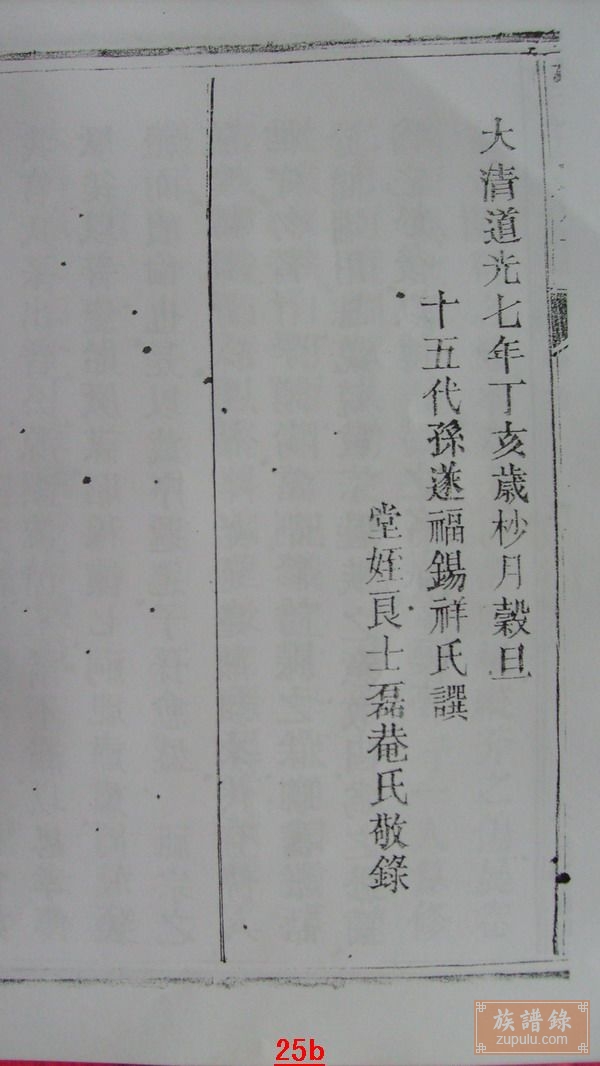 大清道光七年丁亥歲杪月穀旦
十五代孫遂福錫祥氏譔
堂姪良士磊菴氏敬錄
25b
族譜錄
zupulu.com